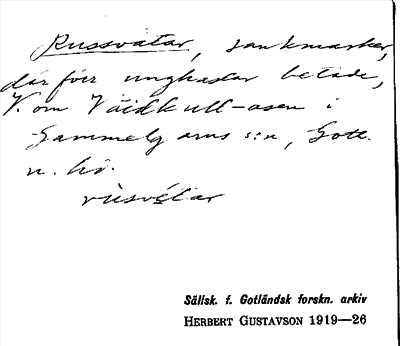 Russvätar, sankmarker,
där förr unghästar betade,
V. om Väidkull-åsen i
Gammelgarns s:n, Gotl.
n. hd.
rùsvétar
Sällsk. f. Gotländsk forskn. arkiv
HERBERT GUSTAVSON 1919—26